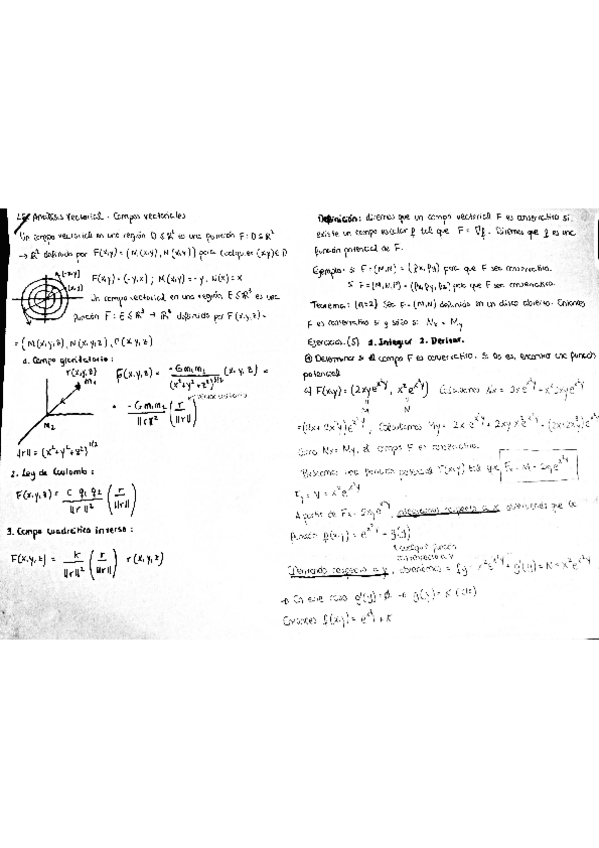 Análisis Vectorial - Campos vectoriales
Un campo vectorial en una región D ⊆ R² es una función F: D ⊆ R²
→ R² definido por F(x,y) = (M(x,y), N(x,y)) para cualquier (x,y) ∈ D
(x,y)
F(x,y) = (-y,x) ; M(x,y) = -y , N(x) = x
Un campo vectorial en una región E ⊆ R³ es una
función F: E ⊆ R³ → R³ definido por F(x,y,z) =
= (M(x,y,z), N(x,y,z), P(x,y,z))
1. Campo gravitatorio:
r(x,y,z)
m1
M2
F(x,y,z) = -G m1 m2 / (x²+y²+z²)^3/2 (x,y,z) =
= -G m1 m2 / ||r||² (r/||r||)
||r|| = (x²+y²+z²)^1/2
2. Ley de Coulomb:
F(x,y,z) = C q1 q2 / ||r||² (r/||r||)
3. Campo cuadrático inverso:
F(x,y,z) = k / ||r||² (r/||r||) r(x,y,z)
Definición: diremos que un campo vectorial F es conservativo si
existe un campo escalar f tal que F = ∇f. Diremos que f es una
función potencial de F.
Ejemplo: si F = (M,N) = (fx, fy) para que F sea conservativo.
si F = (M,N,P) = (fx, fy, fz) para que F sea conservativo.
Teorema: (n=2) Sea F = (M,N) definido en un disco abierto. Entonces
F es conservativo si y sólo si Nx = My
Ejercicio. (5) 1. Integrar 2. Derivar.
Determinar si el campo F es conservativo. Si lo es, encontrar una función
potencial
c) F(x,y) = (2xye^x²y, x²e^x²y) Calculamos Nx = 2xe^x²y + x²2xye^x²y
M N
= (2x + 2x³y)e^x²y, Calculamos My = 2xe^x²y + 2xy x²e^x²y = (2x+2x³y)e^x²y
Como Nx = My, el campo F es conservativo.
Buscamos una función potencial f(x,y) tal que fx = M = 2xye^x²y
fy = N = x²e^x²y
A partir de fx = 2xye^x²y, integramos respecto a x obtenemos que la
función f(x,y) = e^x²y + g(y)
cualquier función
Derivando respecto a y, obtenemos = fy = x²e^x²y + g'(y) = N = x²e^x²y
→ En este caso g'(y) = 0 → g(y) = K (cte)
Entonces f(x,y) = e^x²y + K